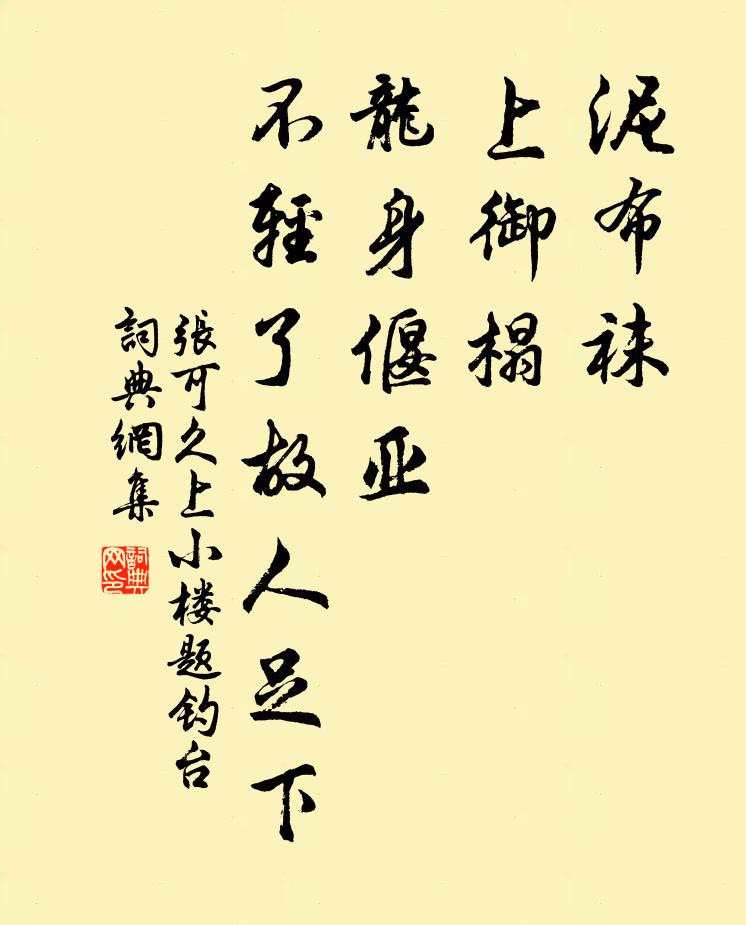 泥布袜
上御榻
龍身偃亚
不輕了故人足下
張可久上小楼題钓台
詞典網集
詞典网印